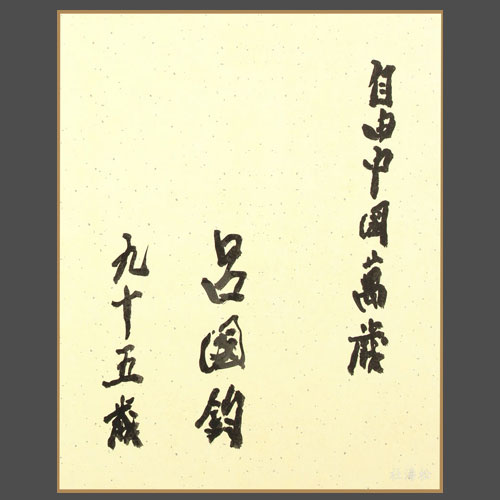 自由中国萬歲
呂国鈞
九十五歲